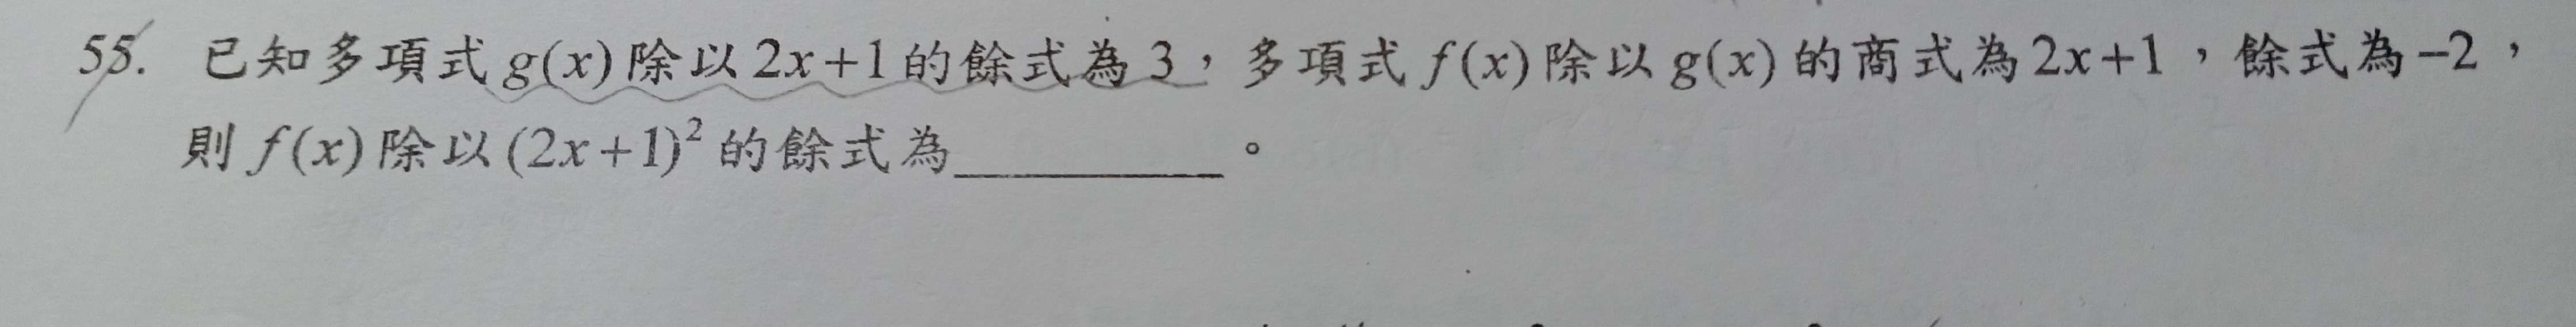 55. 已知多項式 g(x) 除以 2x+1 的餘式為 3，多項式 f(x) 除以 g(x) 的商式為 2x+1，餘式為 -2，
則 f(x) 除以 (2x+1)² 的餘式為__________。